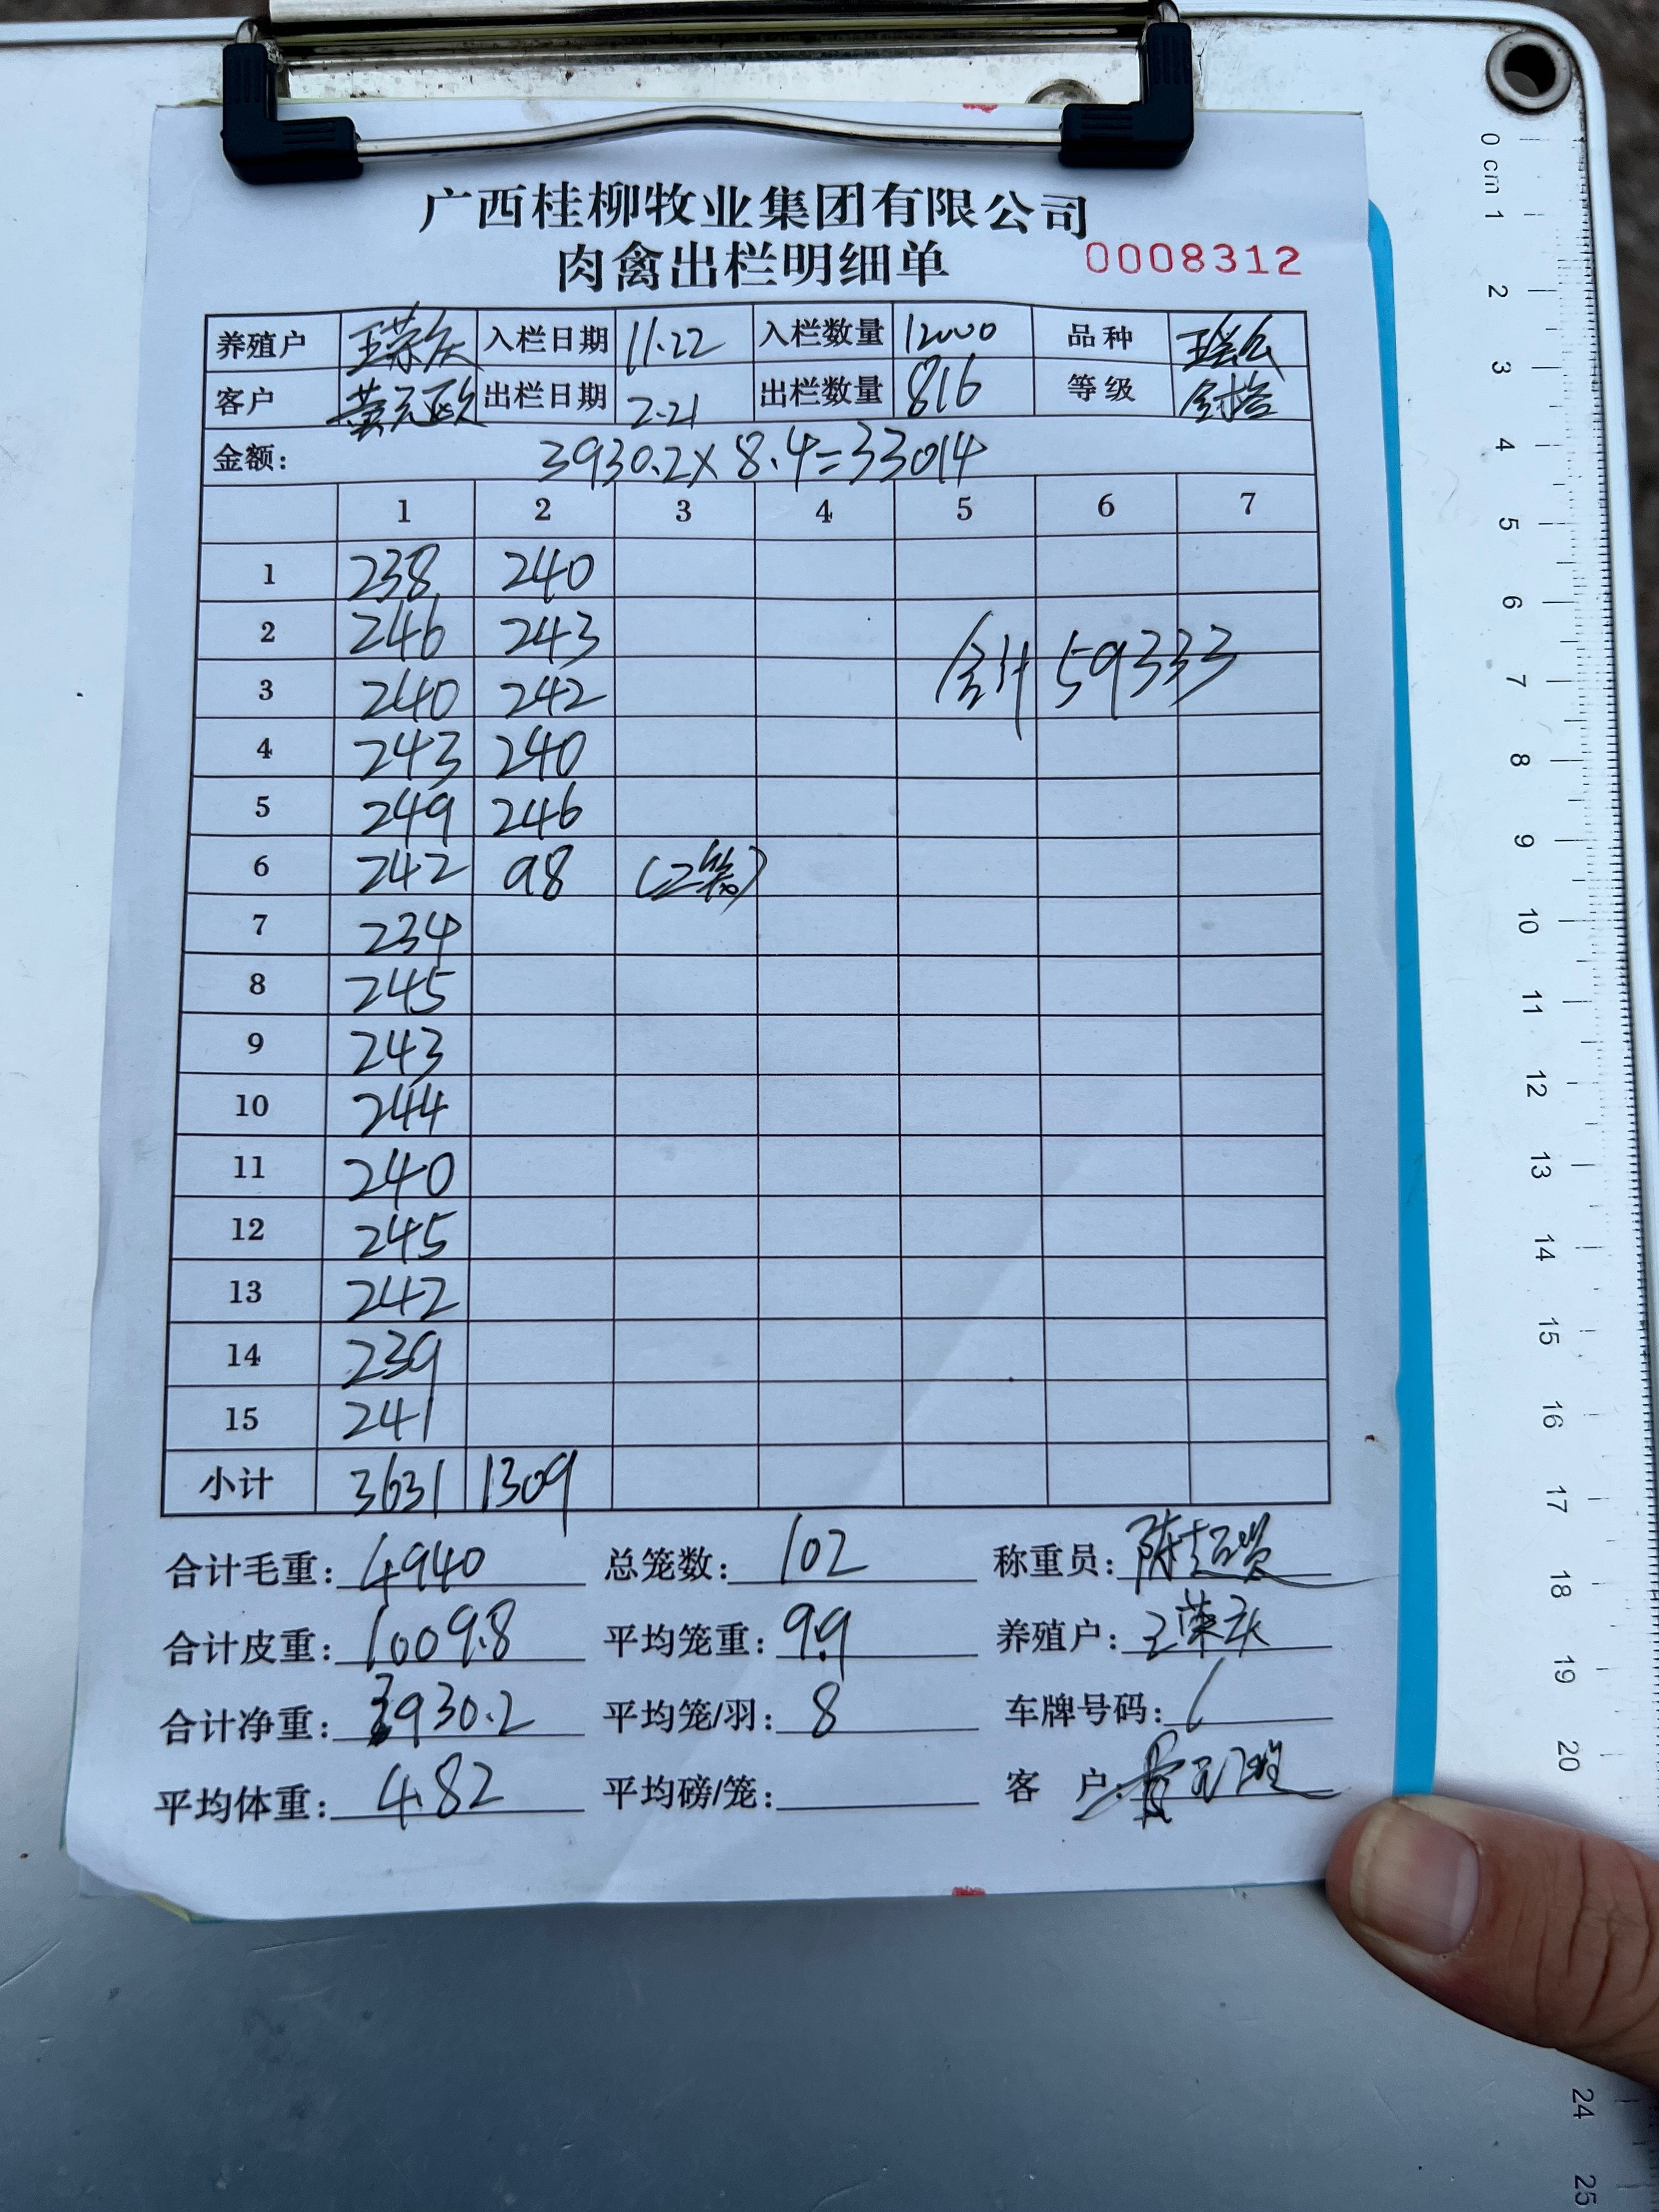 广西桂柳牧业集团有限公司
肉禽出栏明细单 0008312
养殖户 王荣庆 入栏日期 11.22 入栏数量 12000 品种
客户 出栏日期 2.21 出栏数量 816 等级
金额: 3930.2×8.4=33014
1 2 3 4 5 6 7
1 238 240
2 246 243
合计 59333
3 240 242
4 243 240
5 249 246
6 242 98 (2笼)
7 234
8 245
9 243
10 244
11 240
12 245
13 242
14 239
15 241
小计 3631 1309
合计毛重: 4940 总笼数: 102 称重员: 陈超贤
合计皮重: 1009.8 平均笼重: 9.9 养殖户: 王荣庆
合计净重: 3930.2 平均笼/羽: 8 车牌号码: /
平均体重: 4.82 平均磅/笼: 客 户:
0 cm 1
2
3
4
5
6
7
8
9
10
11
12
13
14
15
16
17
18
19
20
24
25